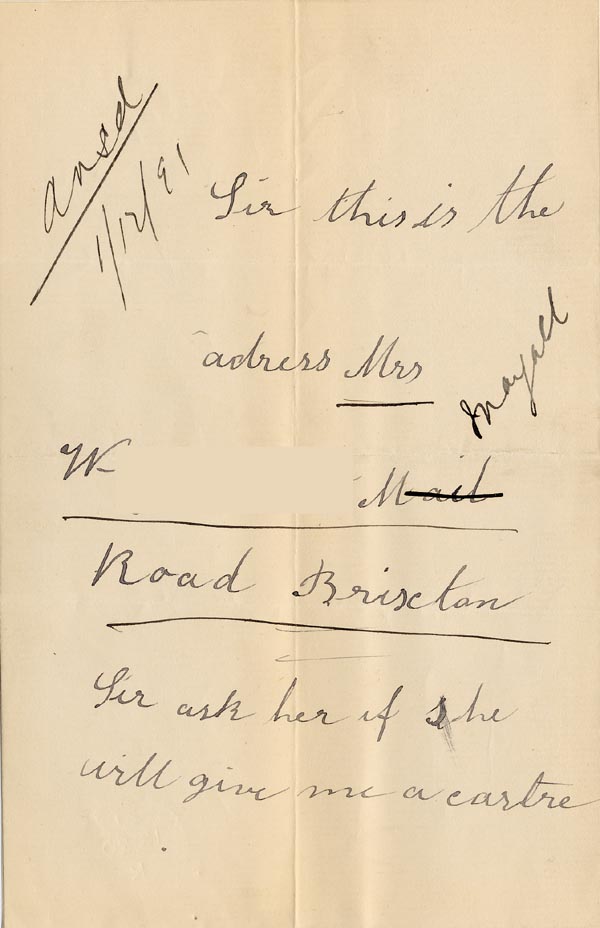 ansd
1/12/91
Sir this is the
adress Mrs
Mayall
W Mail
Road Brixton
Sir ask her if she
will give me a cartre